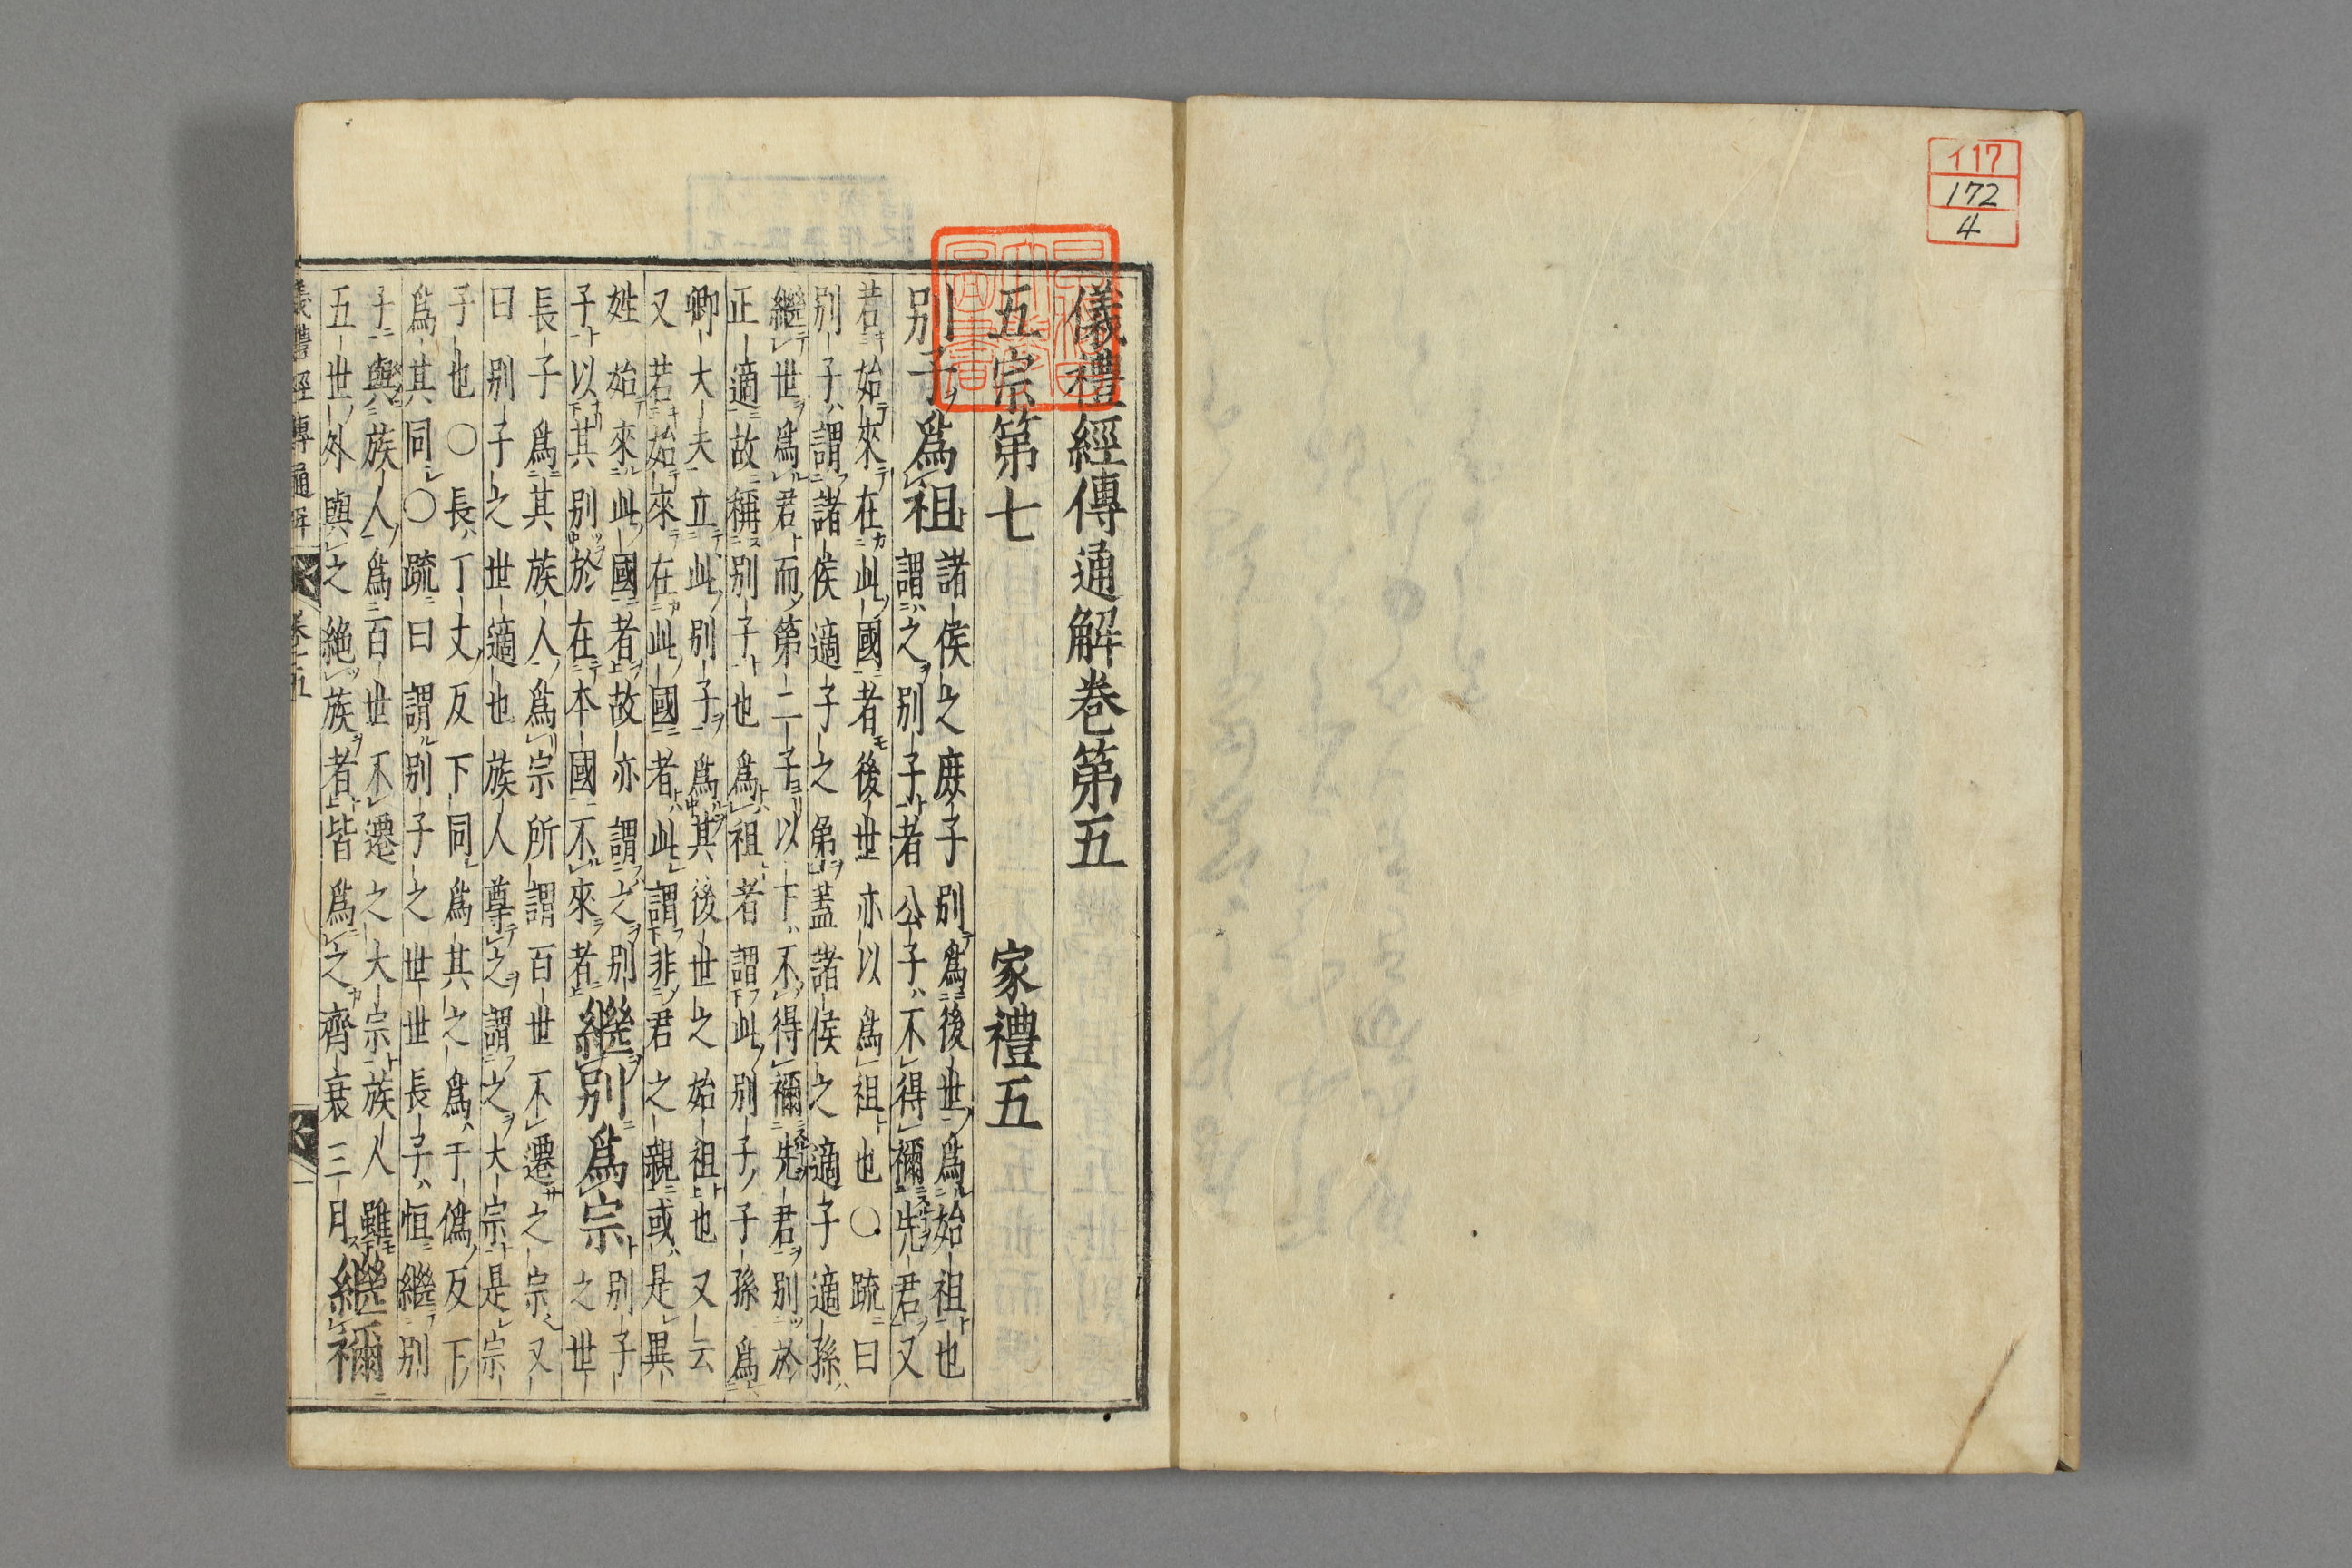 イ17
172
4
儀禮經傳通解卷第五
五宗第七　家禮五
別子爲祖
諸侯之庶子別爲後世爲始祖也
謂之別子者公子不得禰先君又
若始來在此國者後世亦以爲祖也〇疏曰
別子謂諸侯適子之弟蓋諸侯之適子適孫
繼世爲君而第二子以下不得禰先君別於
正適故稱別子也爲祖者謂此別子子孫爲
卿大夫立此別子爲其後世之始祖也又云
又若始來在此國者此謂非君之親或是異
姓始來此國者故亦謂之別
子以其別於在本國不來者
繼別爲宗
別子
之世
長子爲其族人爲宗所謂百世不遷之宗又
曰別子之世適也族人尊之謂之大宗是宗
子也〇長丁丈反下同爲其之爲于僞反下
爲其同〇疏曰謂別子之世世長子恒繼別
子與族人爲百世不遷之大宗族人雖
五世外與之絶族者皆爲之齊衰三月
繼禰
儀禮經傳通解　卷五　一